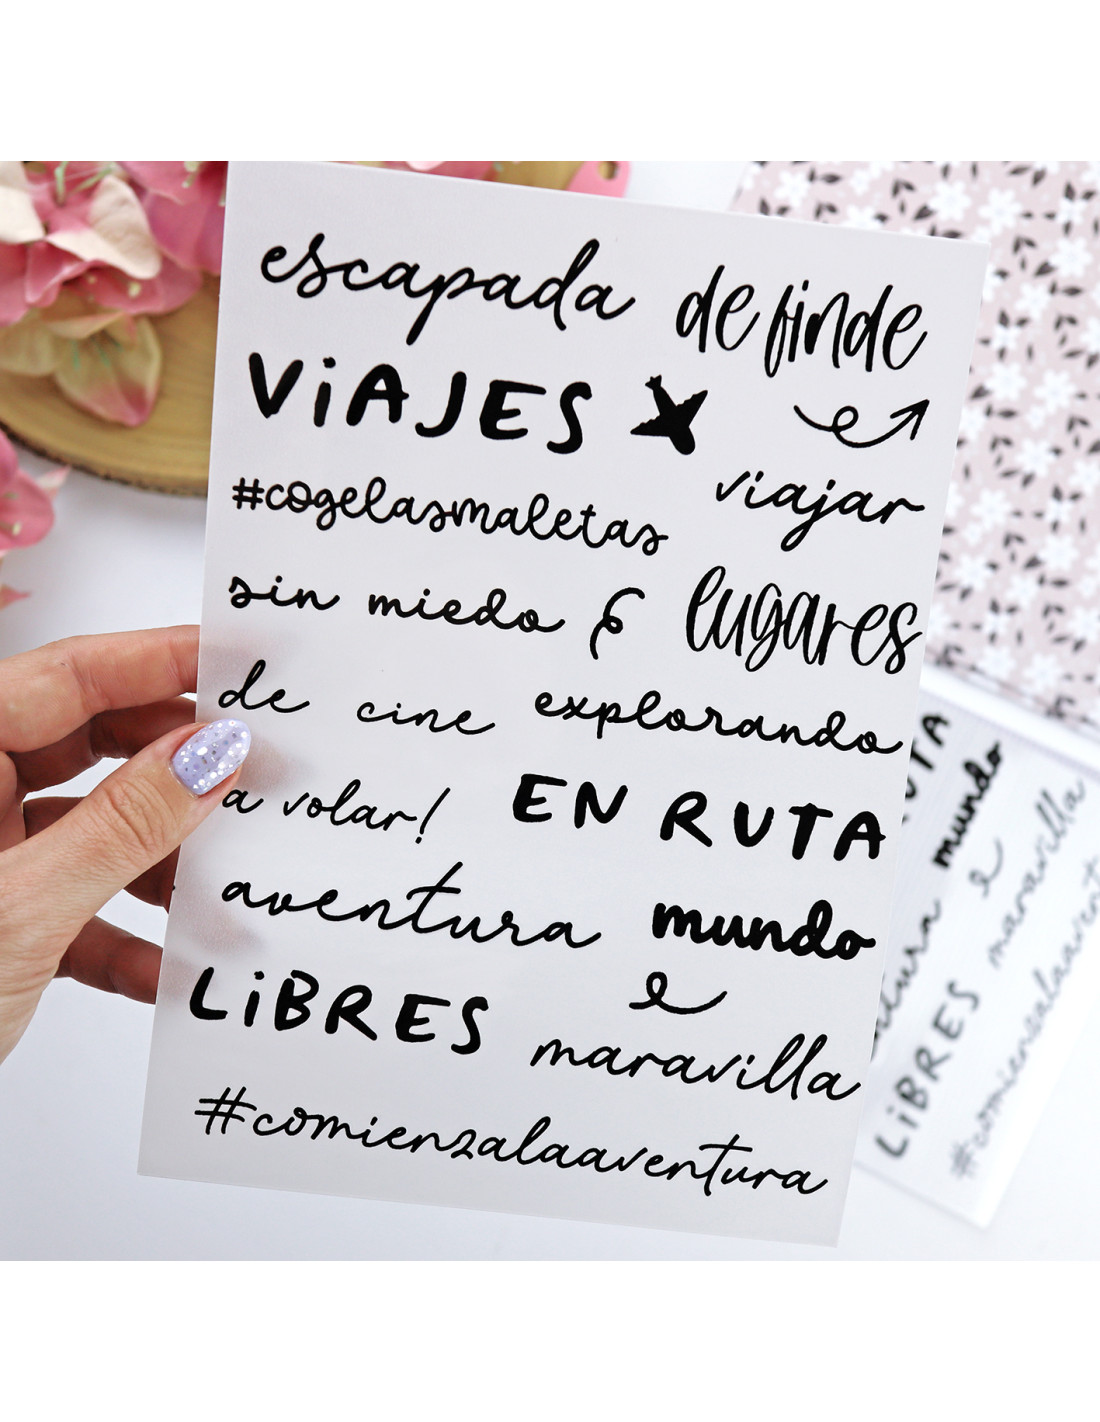 escapada de finde
ViAJES
#cogelasmaletas viajar
sin miedo lugares
de cine explorando
a volar! EN RUTA
aventura mundo
LiBRES
maravilla
#comienzalaaventura
UTA
mundo
tura
maravilla
LiBRES
#comienzalaavent